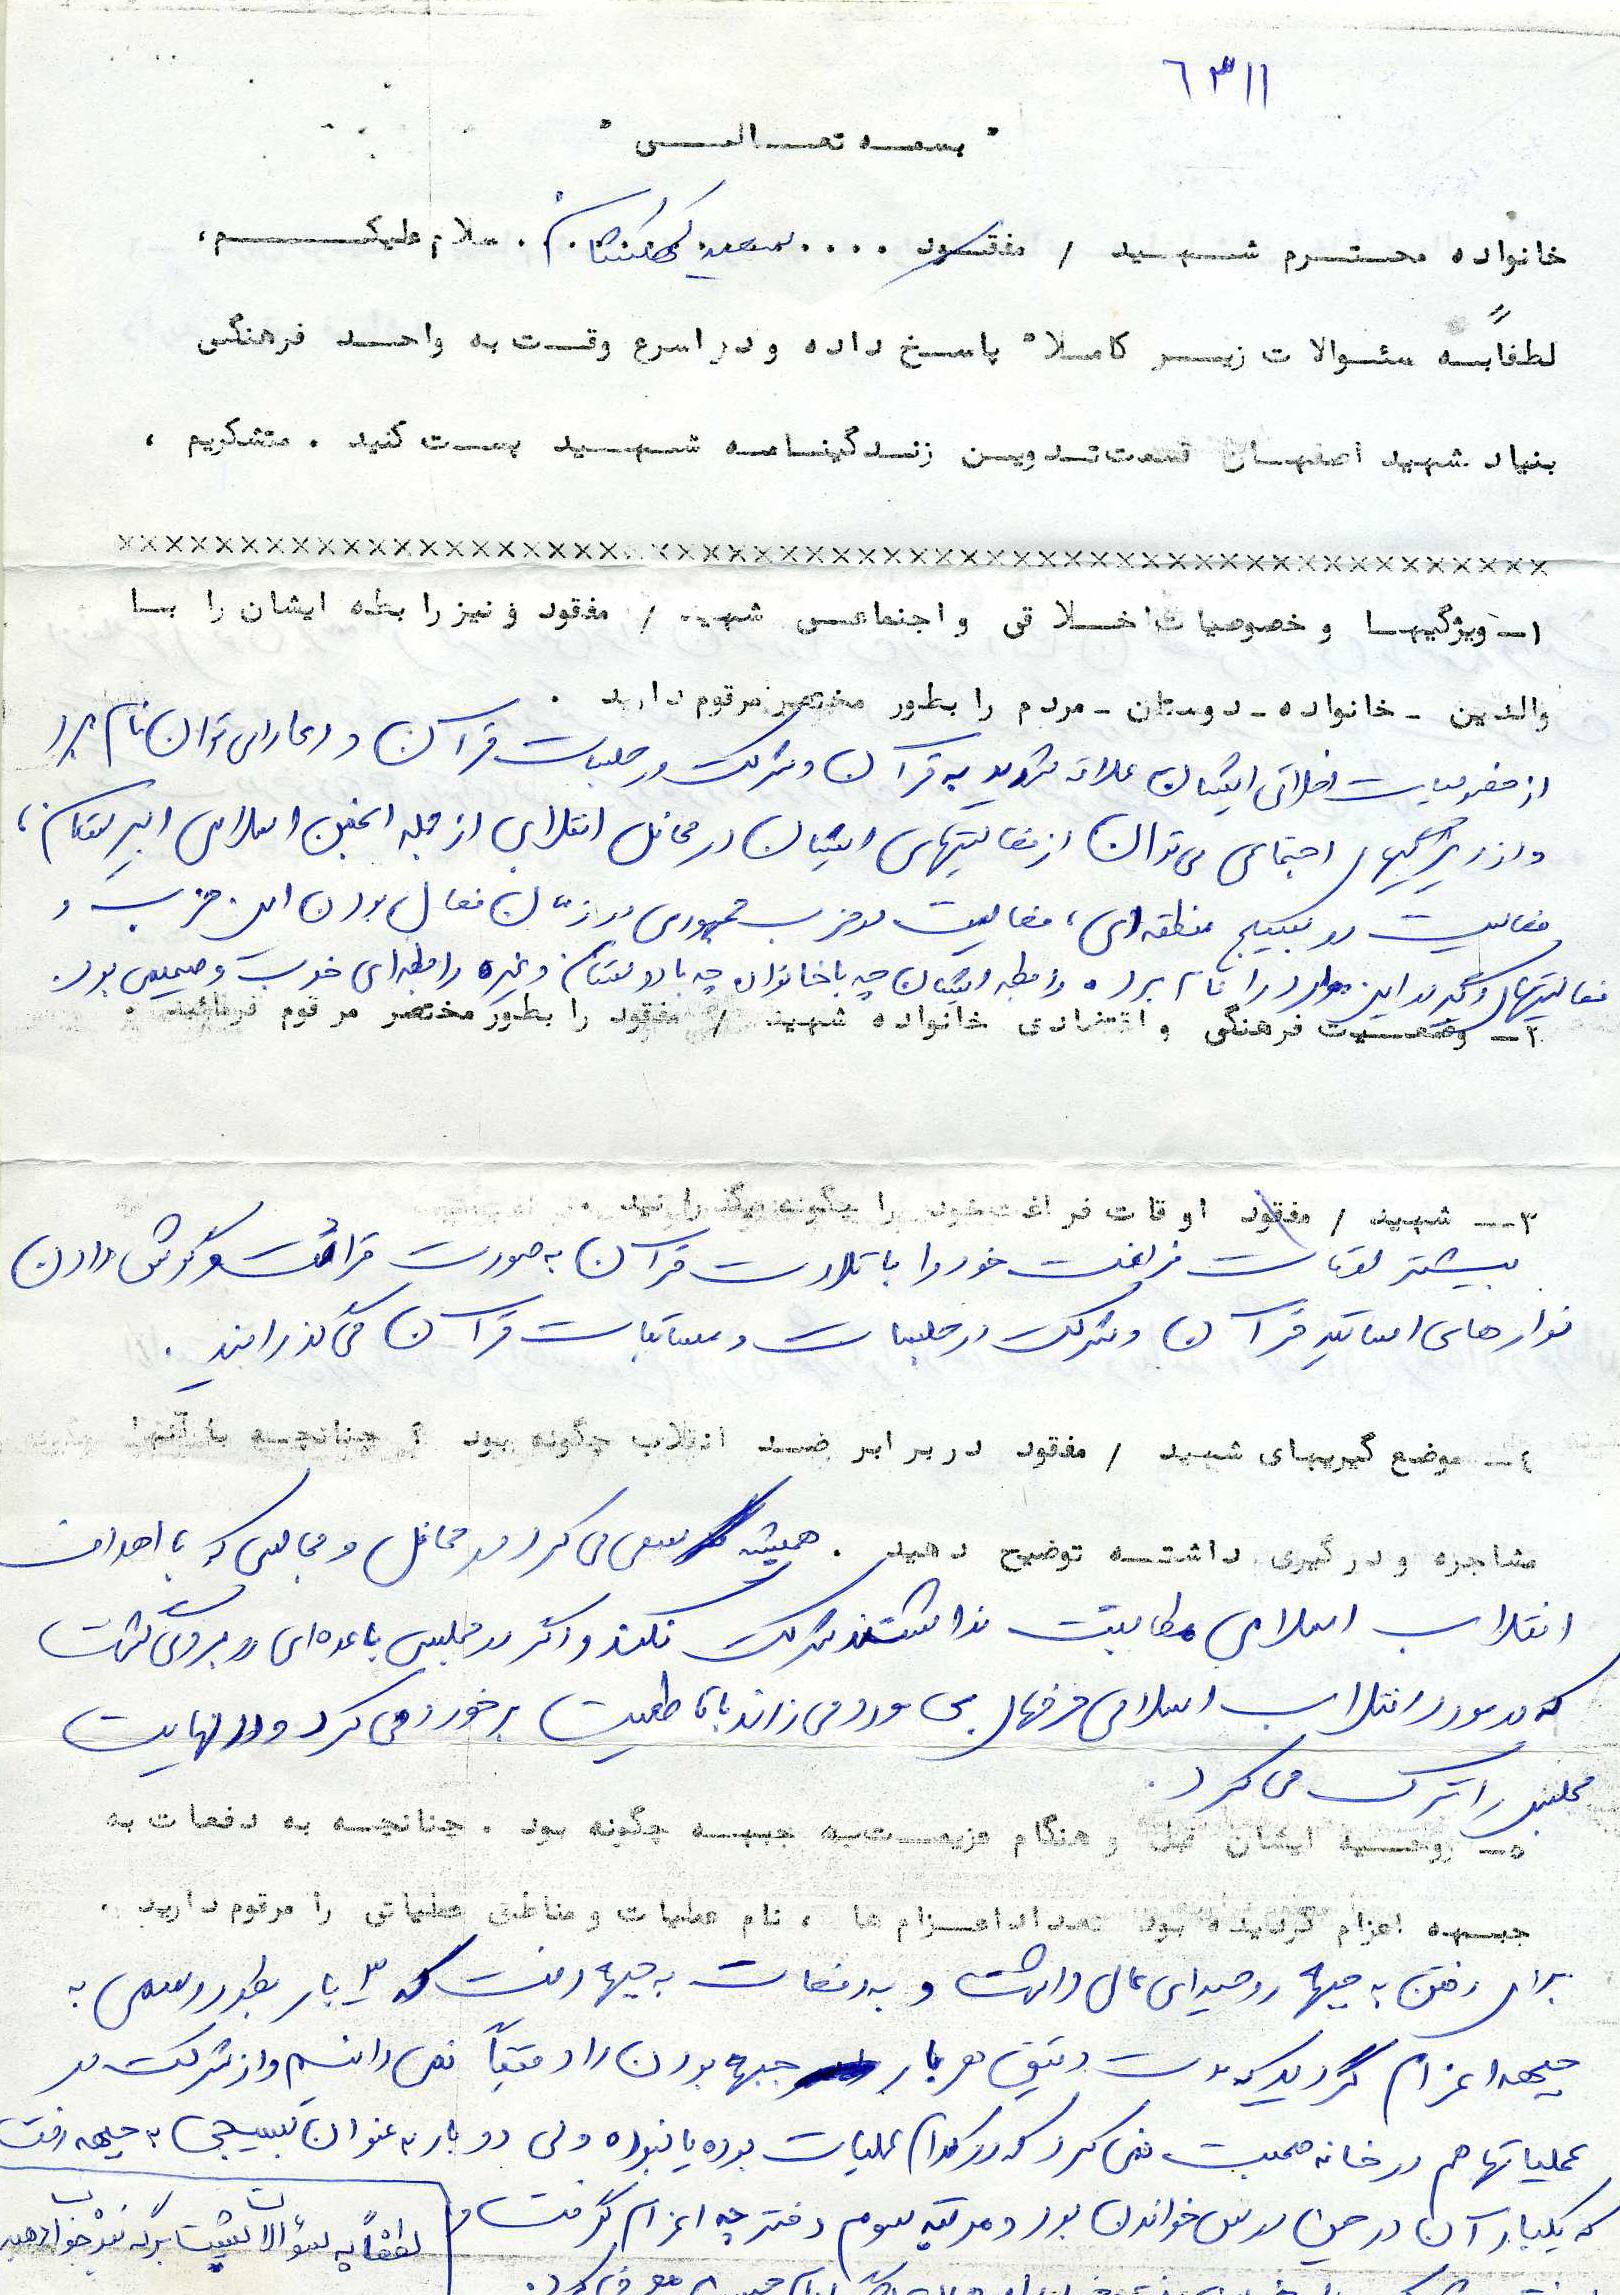 ٦٣١١
" بسمه تعالی "
خانواده محترم شهید / مفقود .... سعید . سلام علیکم ،
لطفاً به سئوالات زیر کاملا" پاسخ داده و در اسرع وقت به واحد فرهنگی
بنیاد شهید اصفهان قسمت تدوین زندگینامه شهید پست کنید . متشکریم ،
××××××××××××××××××××××××××××××××××××××××××××××××××××××××
۱- ویژگیها و خصوصیات اخلاقی و اجتماعی شهید / مفقود و نیز رابطه ایشان را با
والدین - خانواده - دوستان - مردم را بطور مختصر مرقوم دارید .
از خصوصیات اخلاقی ایشان علاقه شدید به قرآن و شرکت در جلسات قرآن و دعا را می توان نام برد
و از ویژگیهای اجتماعی می توان از فعالیتهای ایشان در محافل انقلابی از جمله انجمن اسلامی دبیرستان ،
فعالیت در بسیج منطقه ای ، فعالیت در حزب جمهوری در زمان فعال بودن این حزب و
فعالیتهای دیگر در این موارد را نام برد . رابطه ایشان چه با خانواده چه با دوستان و غیره رابطه ای خوب و صمیمی بود .
۲- وضعیت فرهنگی و اقتصادی خانواده شهید / مفقود را بطور مختصر مرقوم فرمائید .
۳- شهید / مفقود اوقات فراغت خود را چگونه میگذرانید .
بیشتر اوقات فراغت خود را با تلاوت قرآن به صورت قرائت و گوش دادن
نوارهای اساتید قرآن و شرکت در جلسات و مسابقات قرآن می گذرانید .
٤- موضع گیریهای شهید / مفقود در برابر ضد انقلاب چگونه بود ؟ چنانچه با آنها
مشاجره و درگیری داشته توضیح دهید . همیشه سعی می کرد در محافل و مجالسی که با اهداف
انقلاب اسلامی مطابقت نداشتند شرکت نکند و اگر در مجلسی با عده ای روبروی گشت
که در مورد انقلاب اسلامی حرفهای بی مورد می زدند با قاطعیت برخورد می کرد و در نهایت
مجلس را ترک می کرد .
۵- روحیه ایشان قبل و هنگام عزیمت به جبهه چگونه بود . چنانچه به دفعات به
جبهه اعزام گردیده بود تعداد اعزام ها ، نام عملیات و مناطق عملیاتی را مرقوم دارید .
برای رفتن به جبهه روحیه ای عالی داشت و به دفعات به جبهه رفت که ۳ بار بطور رسمی به
جبهه اعزام گردید که مدت دقیق هر بار جبهه بودن را دقیقاً نمی دانیم و از شرکت در
عملیاتها هم در خانه صحبت نمی کرد که در کدام عملیات بوده یا نبوده ولی دو بار به عنوان بسیجی به جبهه رفت
که یکبار آن در حین درس خواندن بود و مرتبه سوم دفترچه اعزام گرفت و
لطفاً به سؤالات پشت برگه نیز جواب دهید